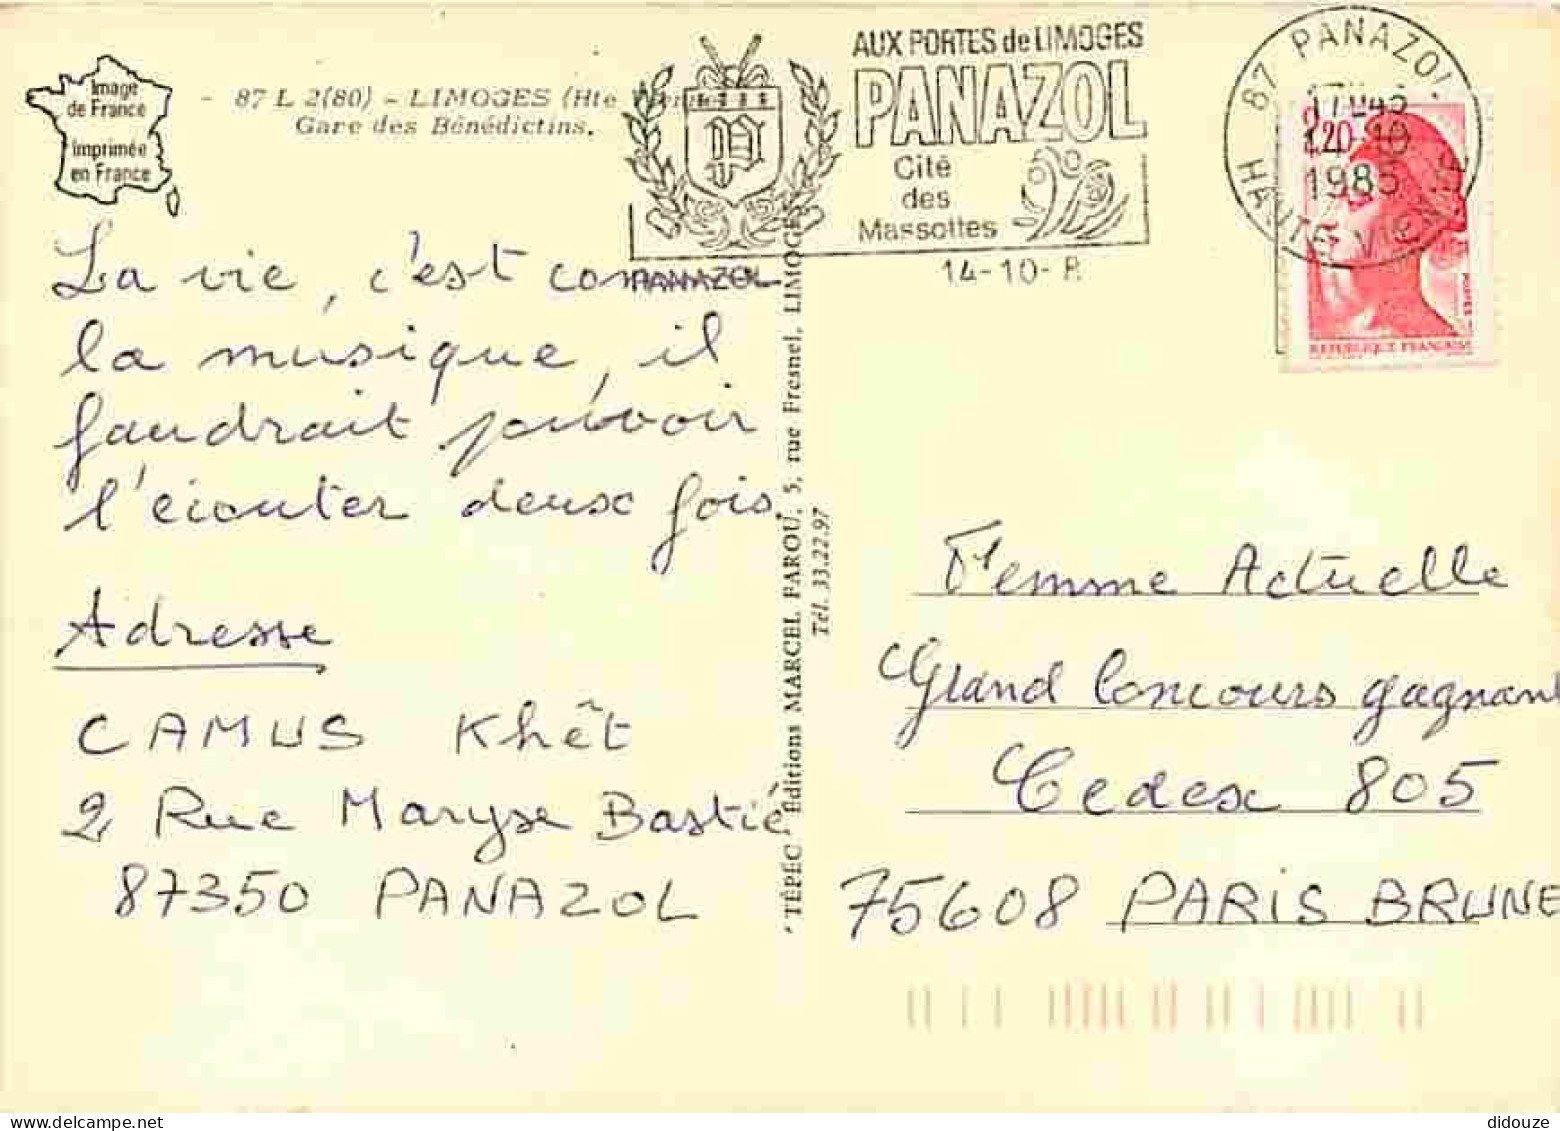 Image
de France
Imprimée
en France
- 87 L 2(80) - LIMOGES (Hte
Gare des Bénédictins.
AUX PORTES de LIMOGES
PANAZOL
Cité
des
Massottes
PANAZOL
14-10-8
87 PANAZOL
17H45
1985
HAUTE-VIENNE
2,20
POSTES
REPUBLIQUE FRANÇAISE
La vie, c'est comme
la musique, il
faudrait pouvoir
l'écouter deux fois.
Adresse
CAMUS Khêt
2 Rue Maryse Bastié
87350 PANAZOL
"TÉPEC" Éditions MARCEL FAROU, 5, rue Fresnel, LIMOGES
Tél. 33.22.97
Femme Actuelle
Grand Concours gagnant
Cedex 805
75608 PARIS BRUNE
didouze